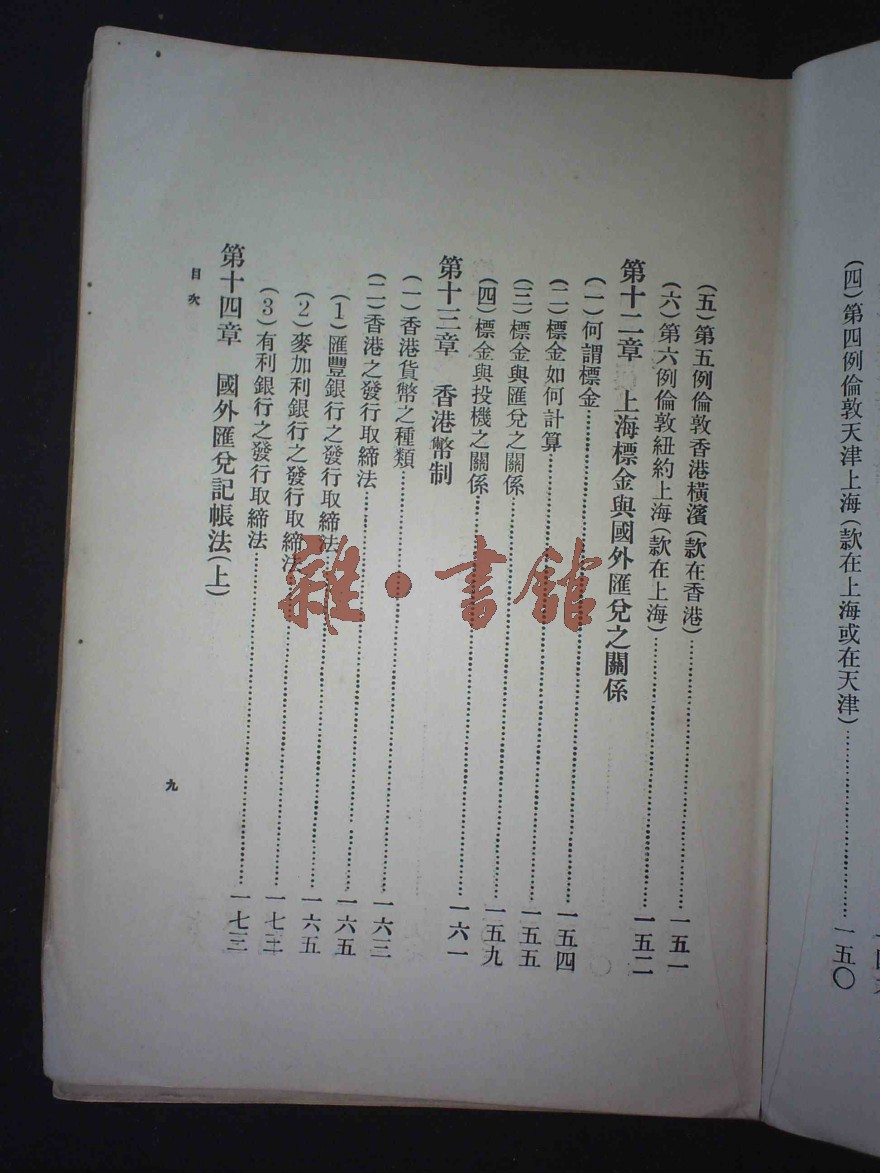 (四)第四例倫敦天津上海(款在上海或在天津)……………一五〇
(五)第五例倫敦香港橫濱(款在香港)……………一五一
(六)第六例倫敦紐約上海(款在上海)……………一五二
第十二章 上海標金與國外匯兌之關係
(一)何謂標金……………一五四
(二)標金如何計算……………一五五
(三)標金與匯兌之關係……………一五九
(四)標金與投機之關係……………一六一
第十三章 香港幣制
(一)香港貨幣之種類……………一六三
(二)香港之發行取締法……………一六五
(1)匯豐銀行之發行取締法……………一六五
(2)麥加利銀行之發行取締法……………一七三
(3)有利銀行之發行取締法……………一七三
第十四章 國外匯兌記帳法(上)
目次
九
雜·書館